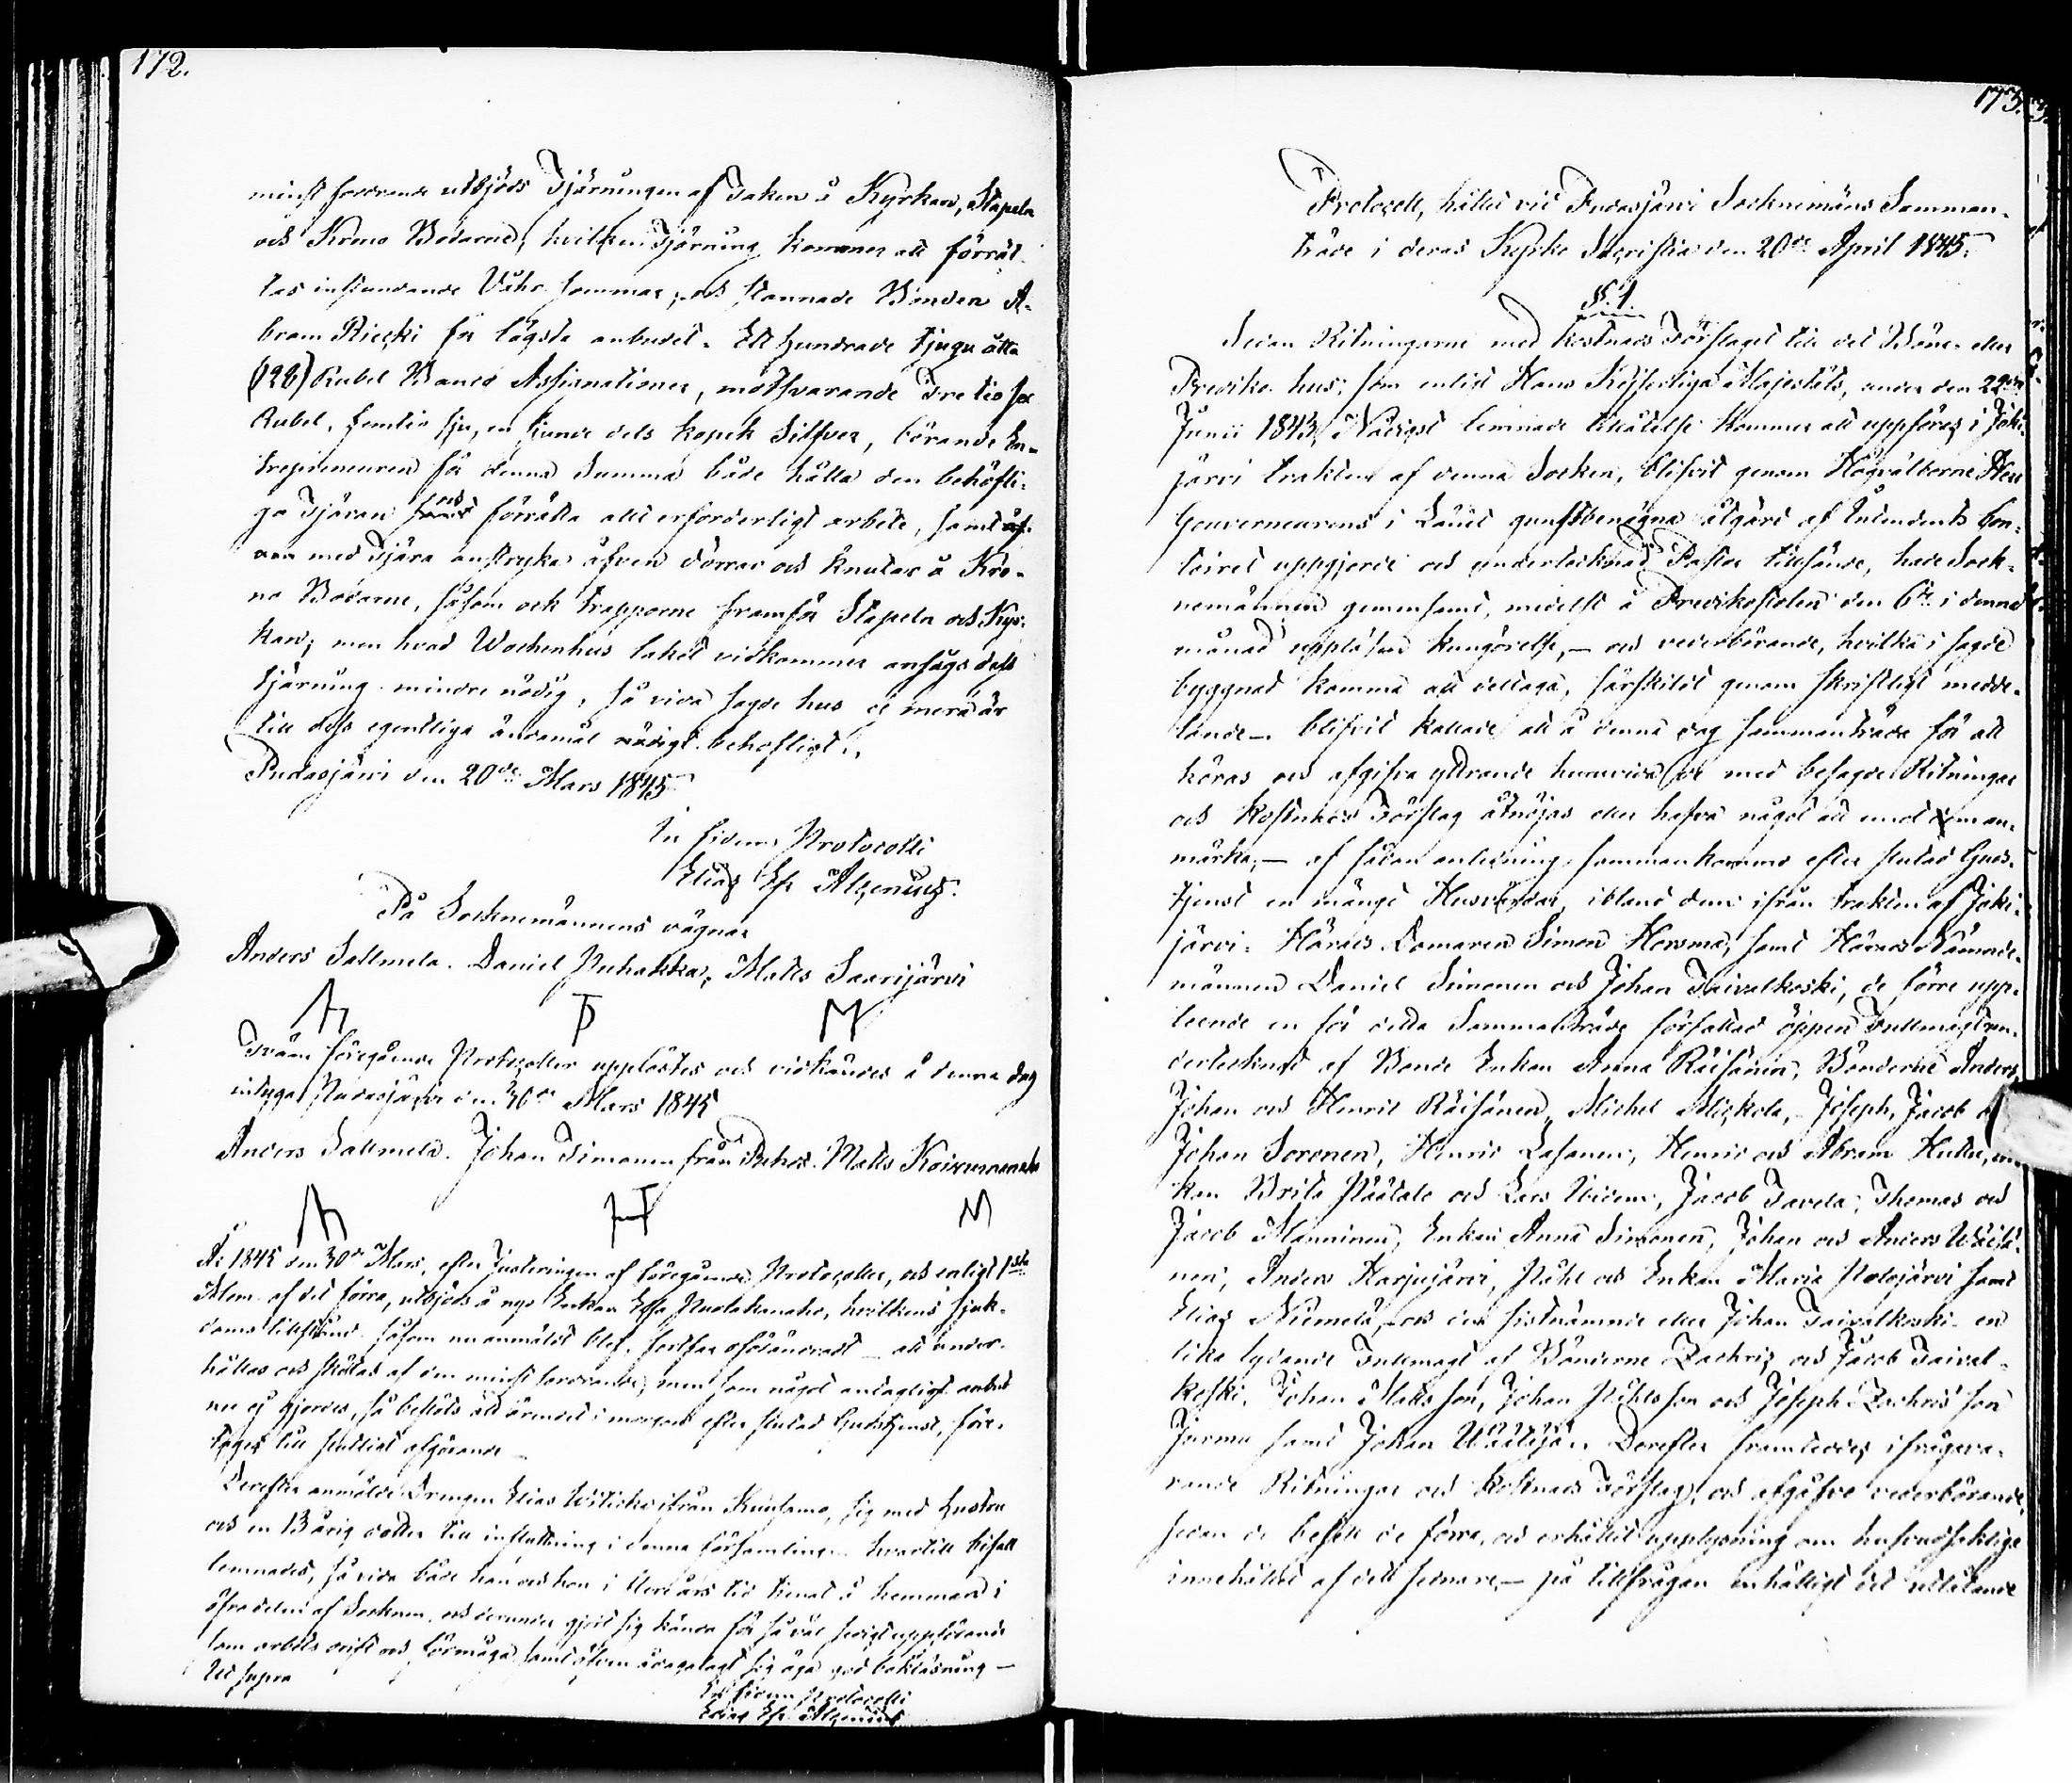 172.
minst fordrande utbjöds Tjärningen af Taken å Kyrkan, Stapeln
och Krono Bodarne, hvilken Tjärning kommer att förrät-
tas instundande Våhr sommar, och stannade Bonden A-
bram Riecki för lägsta anbudet. Ett Hundrade tjugu åtta
(128) Rubel Banco Assignationer, motsvarande Tretio sex
Rubel, femtio sju, en sjunde dels kopek Silfver, börande En-
trepreneuren för denna Summa både hålla den behöfli-
ga Tjäran och förrätta allt erforderligt arbete, samt äf-
ven med Tjära anstryka äfven dörrar och knutar å Kro-
no Bodarne, såsom ock trapporne framför Stapeln och Kyr-
kan; men hvad Wockenhus taket vidkommer ansågs dess
tjärning mindre nödig, så vida sagde hus ej mera är
till dess egentliga ändamål behöfligt.
Pudasjärvi den 20de Mars 1845
In fidem Protocolli
Elias Ef. Alcenius.
På Socknemännens vägnar
Anders Sallmela. Daniel Puhakka, Matts Saarijärvi
Tvänne föregående Protocoller upplästes och vidkändes å denna dag
intygar Pudasjärvi den 30de Mars 1845
Anders Sallmela. Johan Timonen från Puhos. Matts Koivumaa
År 1845 den 30de Mars, efter Justeringen af föregående Protocoller, och enligt 1sta
Mom. af det förra, utbjöds å nyo Enkan Puolakanaho, hvilkens sjuk-
doms tillstånd såsom nu anmäldt blef, fortfar oförändradt – att under-
hållas och skötas af den minst fordrande; men som något antagligt anbud
nu ej gjordes, så beslöts att ärendet i morgon efter slutad Gudstjenst, före-
tages till slutligt afgörande –
Derefter anmälde Drengen Elias Witicko ifrån Kuusamo, sig med hustru
och en 13 årig dotter till inflyttning i denna församling – hvartill bifall
lemnades, så vida både han och hon i flere års tid tjenat å hemman i
öfra delen af Socknen, och derunder gjort sig kända för så väl sedigt uppförande
som arbets drift och förmåga, samt äfven ådagalagt sig äga god bokläsning –
Ut supra
In fidem Protocolli
Elias Ef. Alcenius
173.
Protocoll, hållet vid Pudasjärvi Socknemäns Samman-
träde i deras Kyrko Sacristia den 20de April 1845.
§. 1.
Sedan Ritningarne med kostnads Förslaget till det Böne- eller
Prediko hus, som enligt Hans Kejserliga Majestäts, under den 22dra
Junii 1843, Nådigst lemnade tillåtelse kommer att uppföras i Joki-
järvi trakten af denna Socken, blifvit genom Högvälborne Herr
Gouverneurens i Länet gunstbenägna åtgärd af Intendents Con-
toiret uppgjorde och undertecknad Pastor tillsände, hade Sock-
nemännen gemensamt, medelst å Predikostolen den 6te i denna
månad uppläsen kungörelse, – och vederbörande, hvilka i sagde
byggnad komma att deltaga, särskildt genom skriftligt medde-
lande – blifvit kallade att å denna dag sammanträde för att
höras och afgifva yttrande huruvida de med besagde Ritningar
och Kostnads Förslag åtnöjas eller hafva något att emot dem an-
märka; – af sådan anledning sammankommo efter slutad Guds-
tjenst en mängd Husbönder, ibland dem ifrån trakten af Joki-
järvi: Härads Domaren Simon Horsma, samt Härads Nämnde-
männen Daniel Simonen och Johan Taivalkoski, de förre upp-
teende en för detta Sammanträde författad öppen Fullmagt un-
dertecknad af Bonde Enkan Anna Räisänen, Bönderne Anders,
Johan och Henric Räisänen, Michel Mickola, Joseph, Jacob
Johan Soronen, Henric Lasanen, Henric och Abram Hukka,
kan Brita Määttälä och Lars Virkkunen, Jacob Tavela, Thomas och
Jacob Manninen, Enkan Anna Simonen, Johan och Anders Wäisä-
nen, Anders Harjujärvi, Påhl och Enkan Maria Polojärvi samt
Elias Niemelä, och den sistnämnde eller Johan Taivalkoski en
lika lydande Fullmagt af Bönderne Zachris och Jacob Taival-
koski, Johan Matts son, Johan Påhls son och Joseph Zachris son
Jurmu samt Johan Wäätäjä. Derefter framteddes ifrågava-
rande Ritningar och Kostnads Förslag, och afgåfvo vederbörande,
sedan de besett de förra, och erhållit upplysning om hufvudsakliga
innehållet af det sednare – på tillfrågan enhälligt det utlåtande